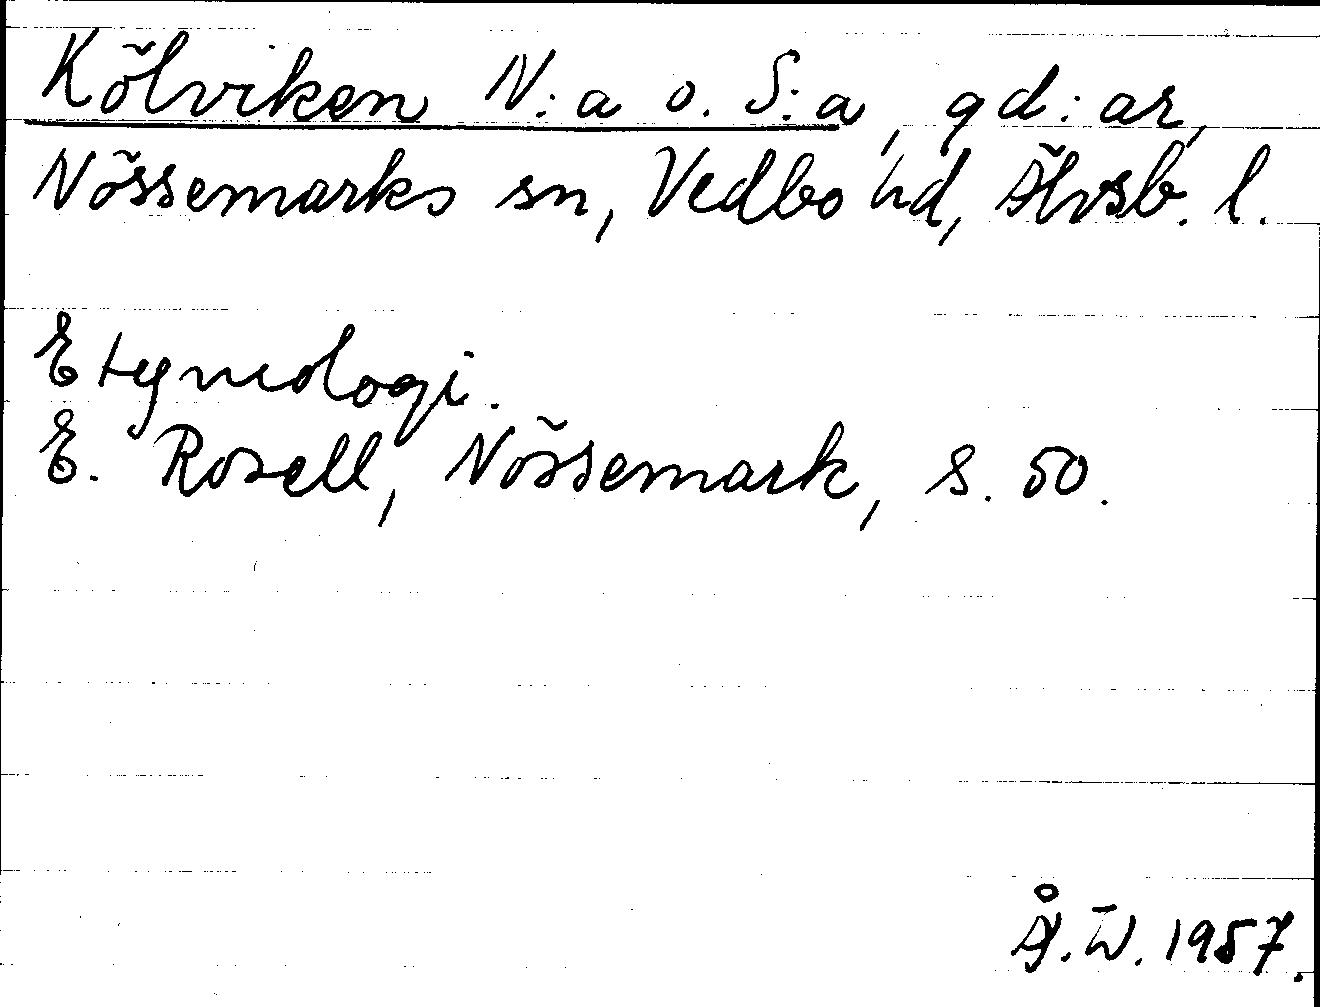 Kölviken N:a o. S:a, gd:ar,
Nössemarks sn, Vedbo hd, Älvsb. l.
Etymologi.
E. Rosell, Nössemark, s. 50.
Å.W. 1957.